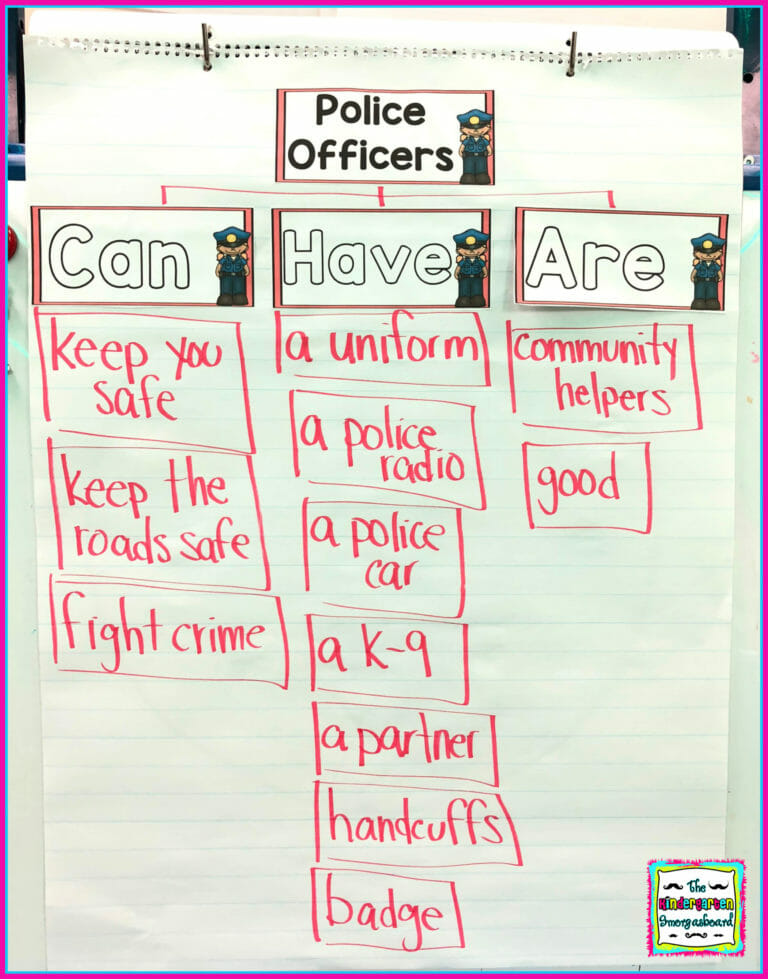 Police
Officers
Can
Have
Are
keep you
safe
keep the
roads safe
fight crime
a uniform
a police
radio
a police
car
a k-9
a partner
handcuffs
badge
community
helpers
good
The
Kindergarten
Smorgasboard